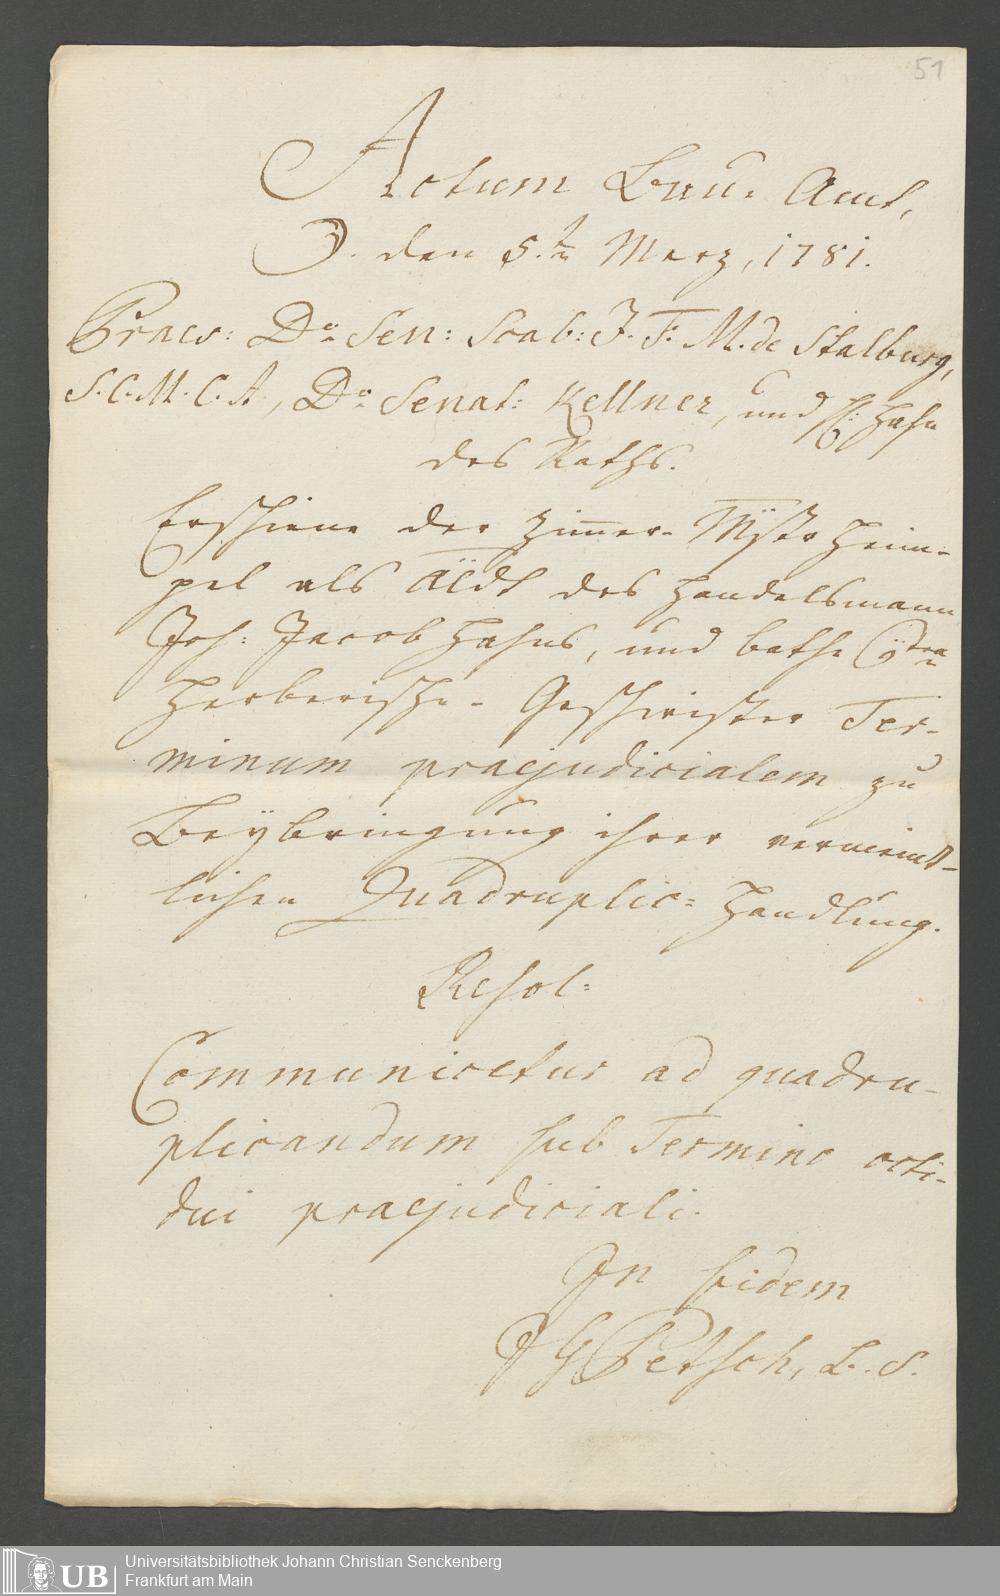 51
Actum Bau: Amt,
D. den 5.ten Merz, 1781.
Praes: Do. Sen: Scab: J. F. M. de Stalburg,
S. C. M. C. A, Do. Senat: Kellner, und H: Hahn
des Raths.
Erschiene der Zimmer-Mstr Heim-
pel als des Handelsmann
Joh: Jacob Hahns, und bathe
Herberische-Geschwister Ter-
minum praejudicialem zu
Beybringung ihrer vermeint-
lichen Quadruplic=Handlung.
Resol:
Communicetur ad quadru-
plicandum sub Termino octi-
dui praejudiciali.
In fidem
JGPetsch, B. S.
UB
Universitätsbibliothek Johann Christian Senckenberg
Frankfurt am Main